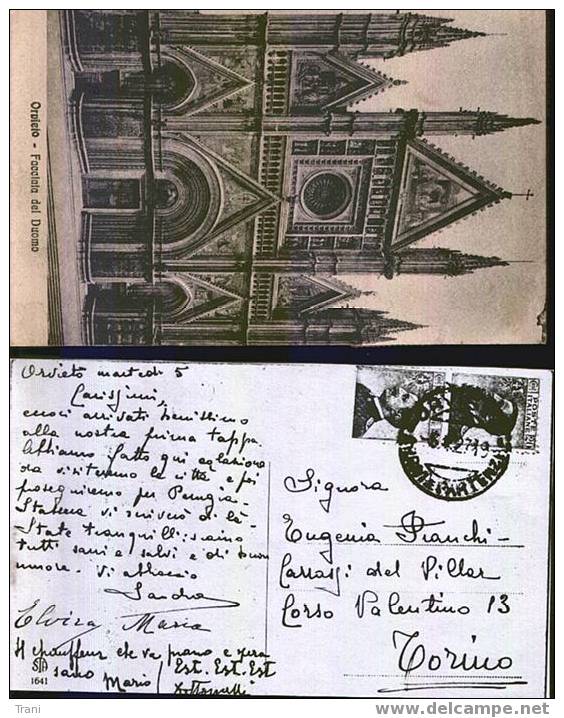 Orvieto - Facciata del Duomo
Orvieto martedì 5
Carissimi,
arrivati benissimo
alla nostra prima tappa.
Abbiamo fatto qui colazione
ora visiteremo la città e poi
proseguiremo per Perugia.
Stasera vi scriverò di là.
State tranquilli: siamo
tutti sani e salvi e di buon
umore. Vi abbraccio
Sandra
Elvira Maria
Il chauffeur che va piano e
sano Mario Est. Est. Est
STA
1641
POSTE
ITALIANE
Signora
Eugenia Franchi-
del Villar
Corso Valentino 13
Torino
Trani
www.delcampe.net